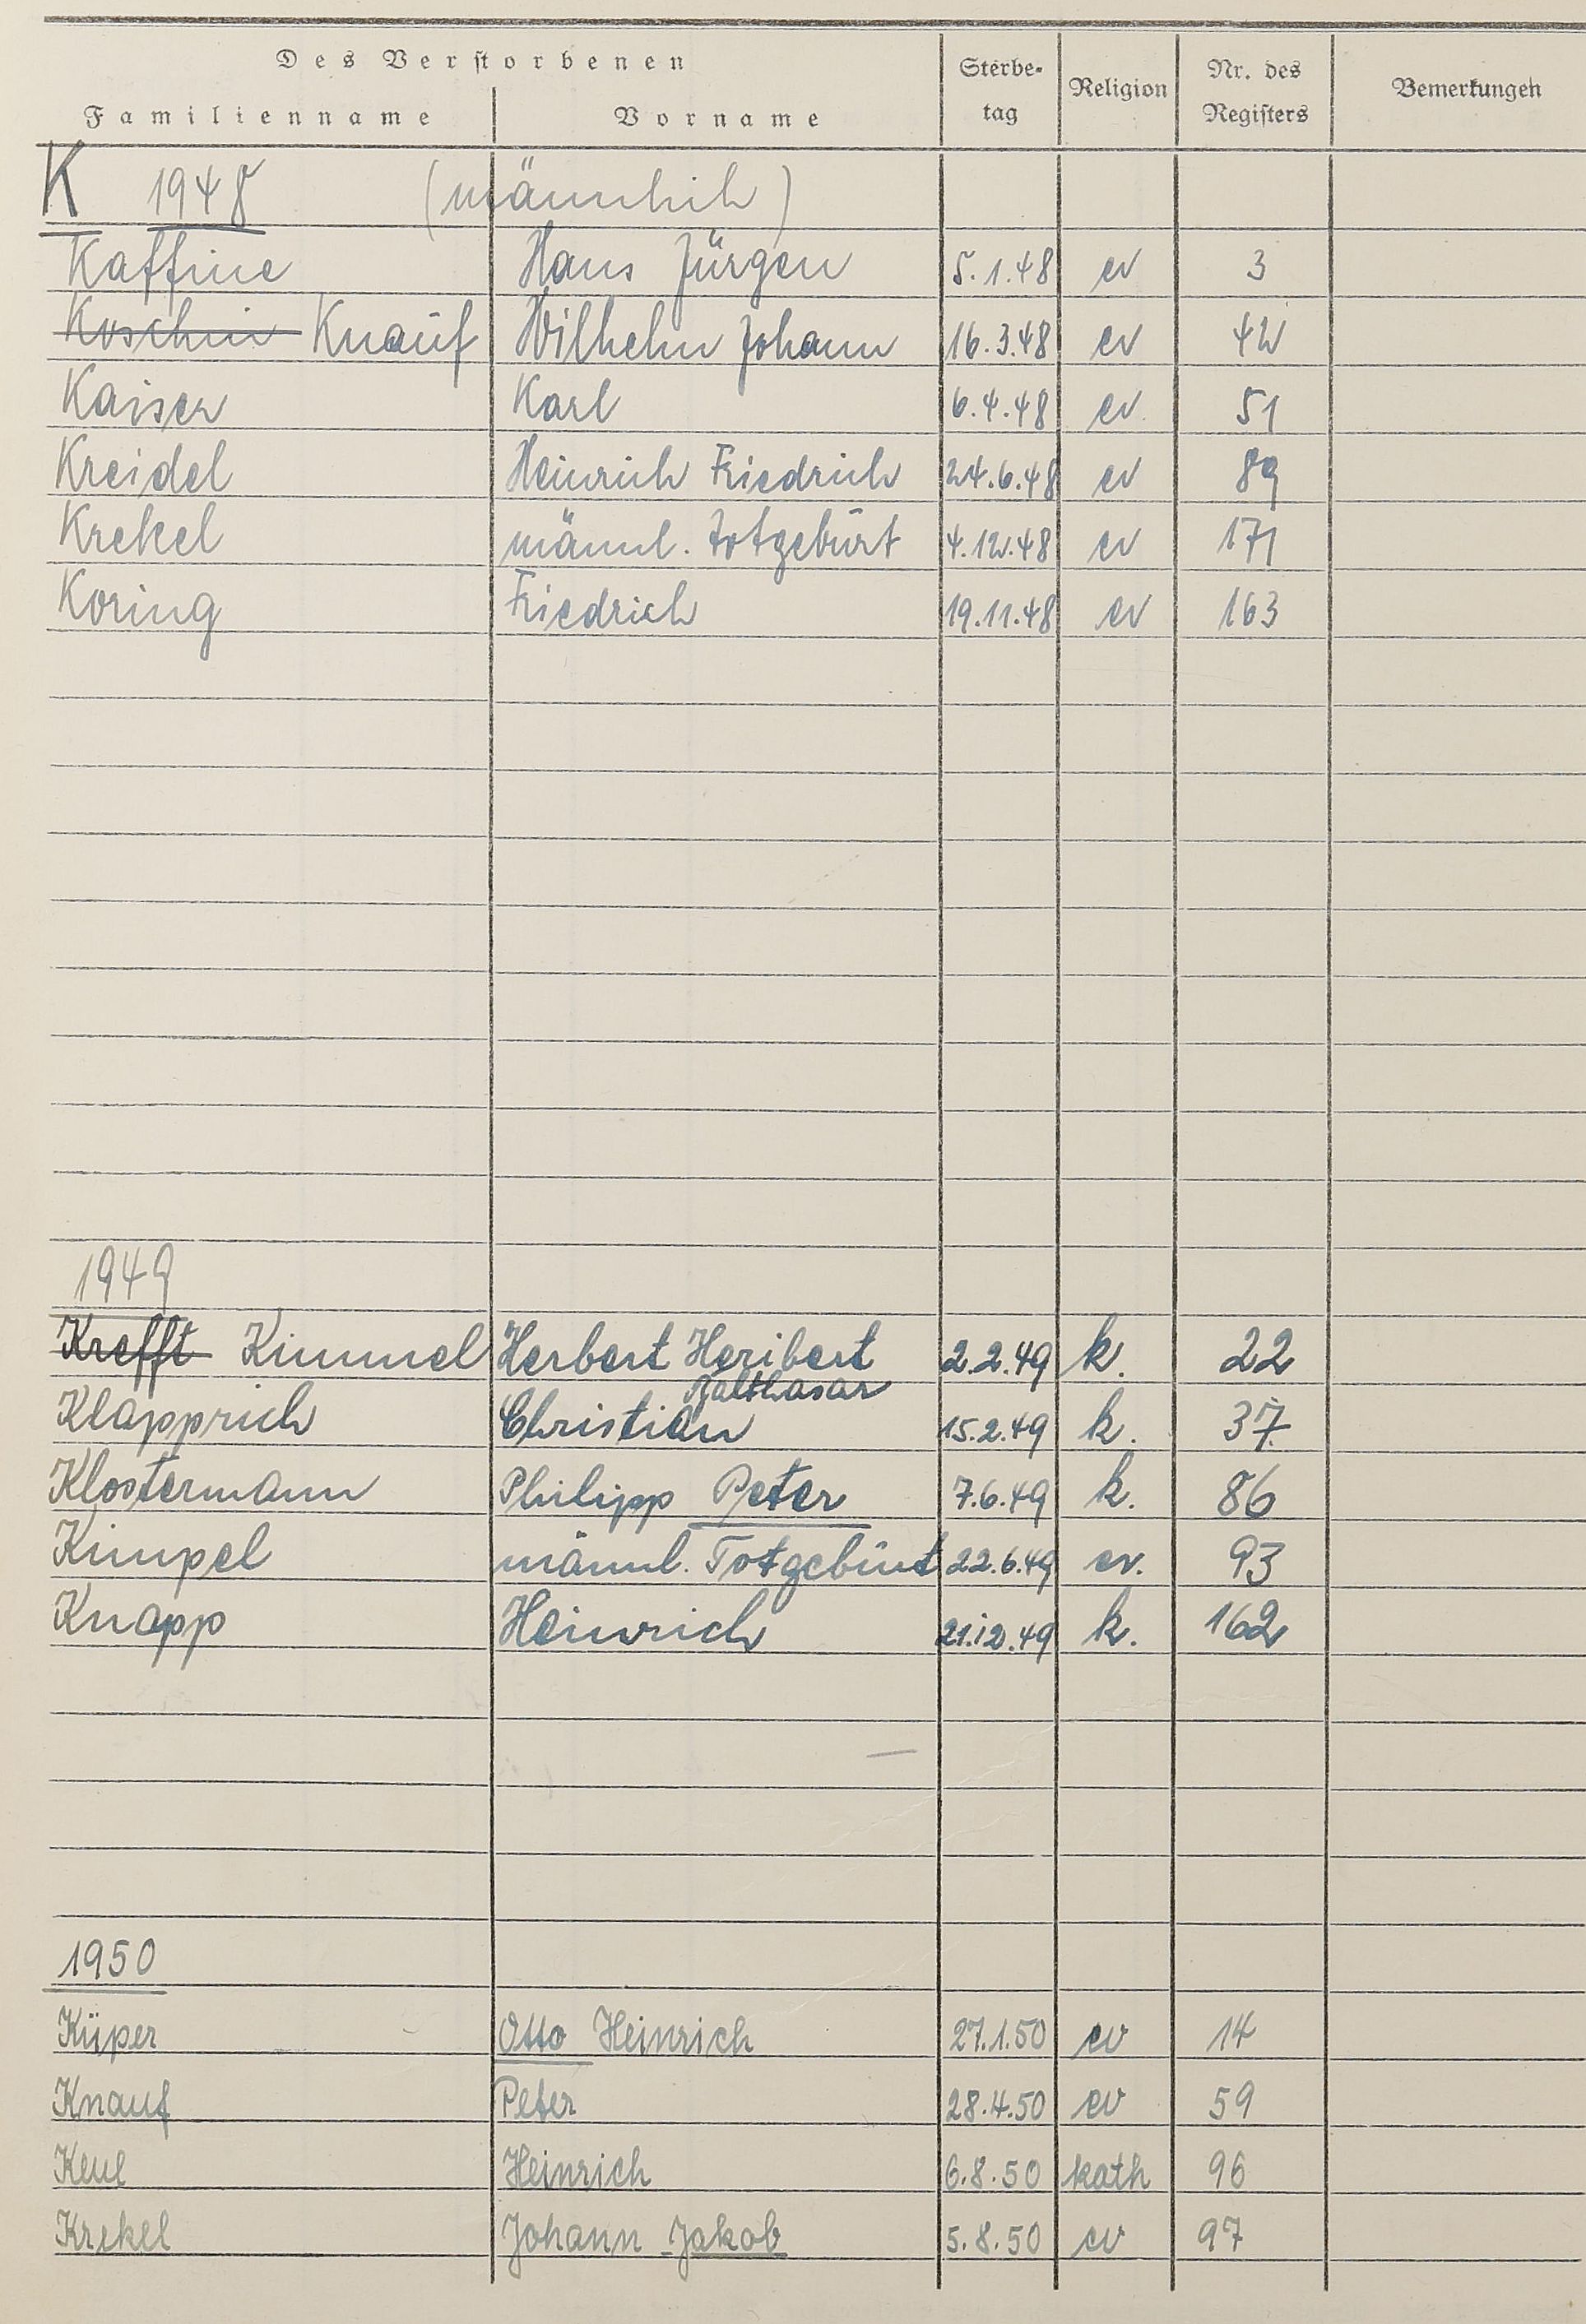 Des Verstorbenen Sterbe- Religion Nr. des Bemerkungen
Familienname Vorname tag Registers
K 1948 (männlich)
Kaffine Hans Jürgen 5.1.48 ev 3
Koschin Knauf Wilhelm Johann 16.3.48 ev 42
Kaiser Karl 6.4.48 ev. 51
Kreidel Heinrich Friedrich 24.6.48 ev 89
Krekel männl. Totgeburt 4.12.48 ev 171
Koring Friedrich 19.11.48 ev 163
1949
Krefft Kimmel Herbert Heribert 2.2.49 k. 22
Balthasar
Klapprich Christian 15.2.49 k. 37
Klostermann Philipp Peter 7.6.49 k. 86
Kimpel männl. Totgeburt 22.6.49 ev. 93
Knapp Heinrich 21.12.49 k. 162
1950
Küper Otto Heinrich 27.1.50 ev 14
Knauf Peter 28.4.50 ev 59
Keul Heinrich 6.8.50 kath 96
Krekel Johann Jakob 5.8.50 ev 97